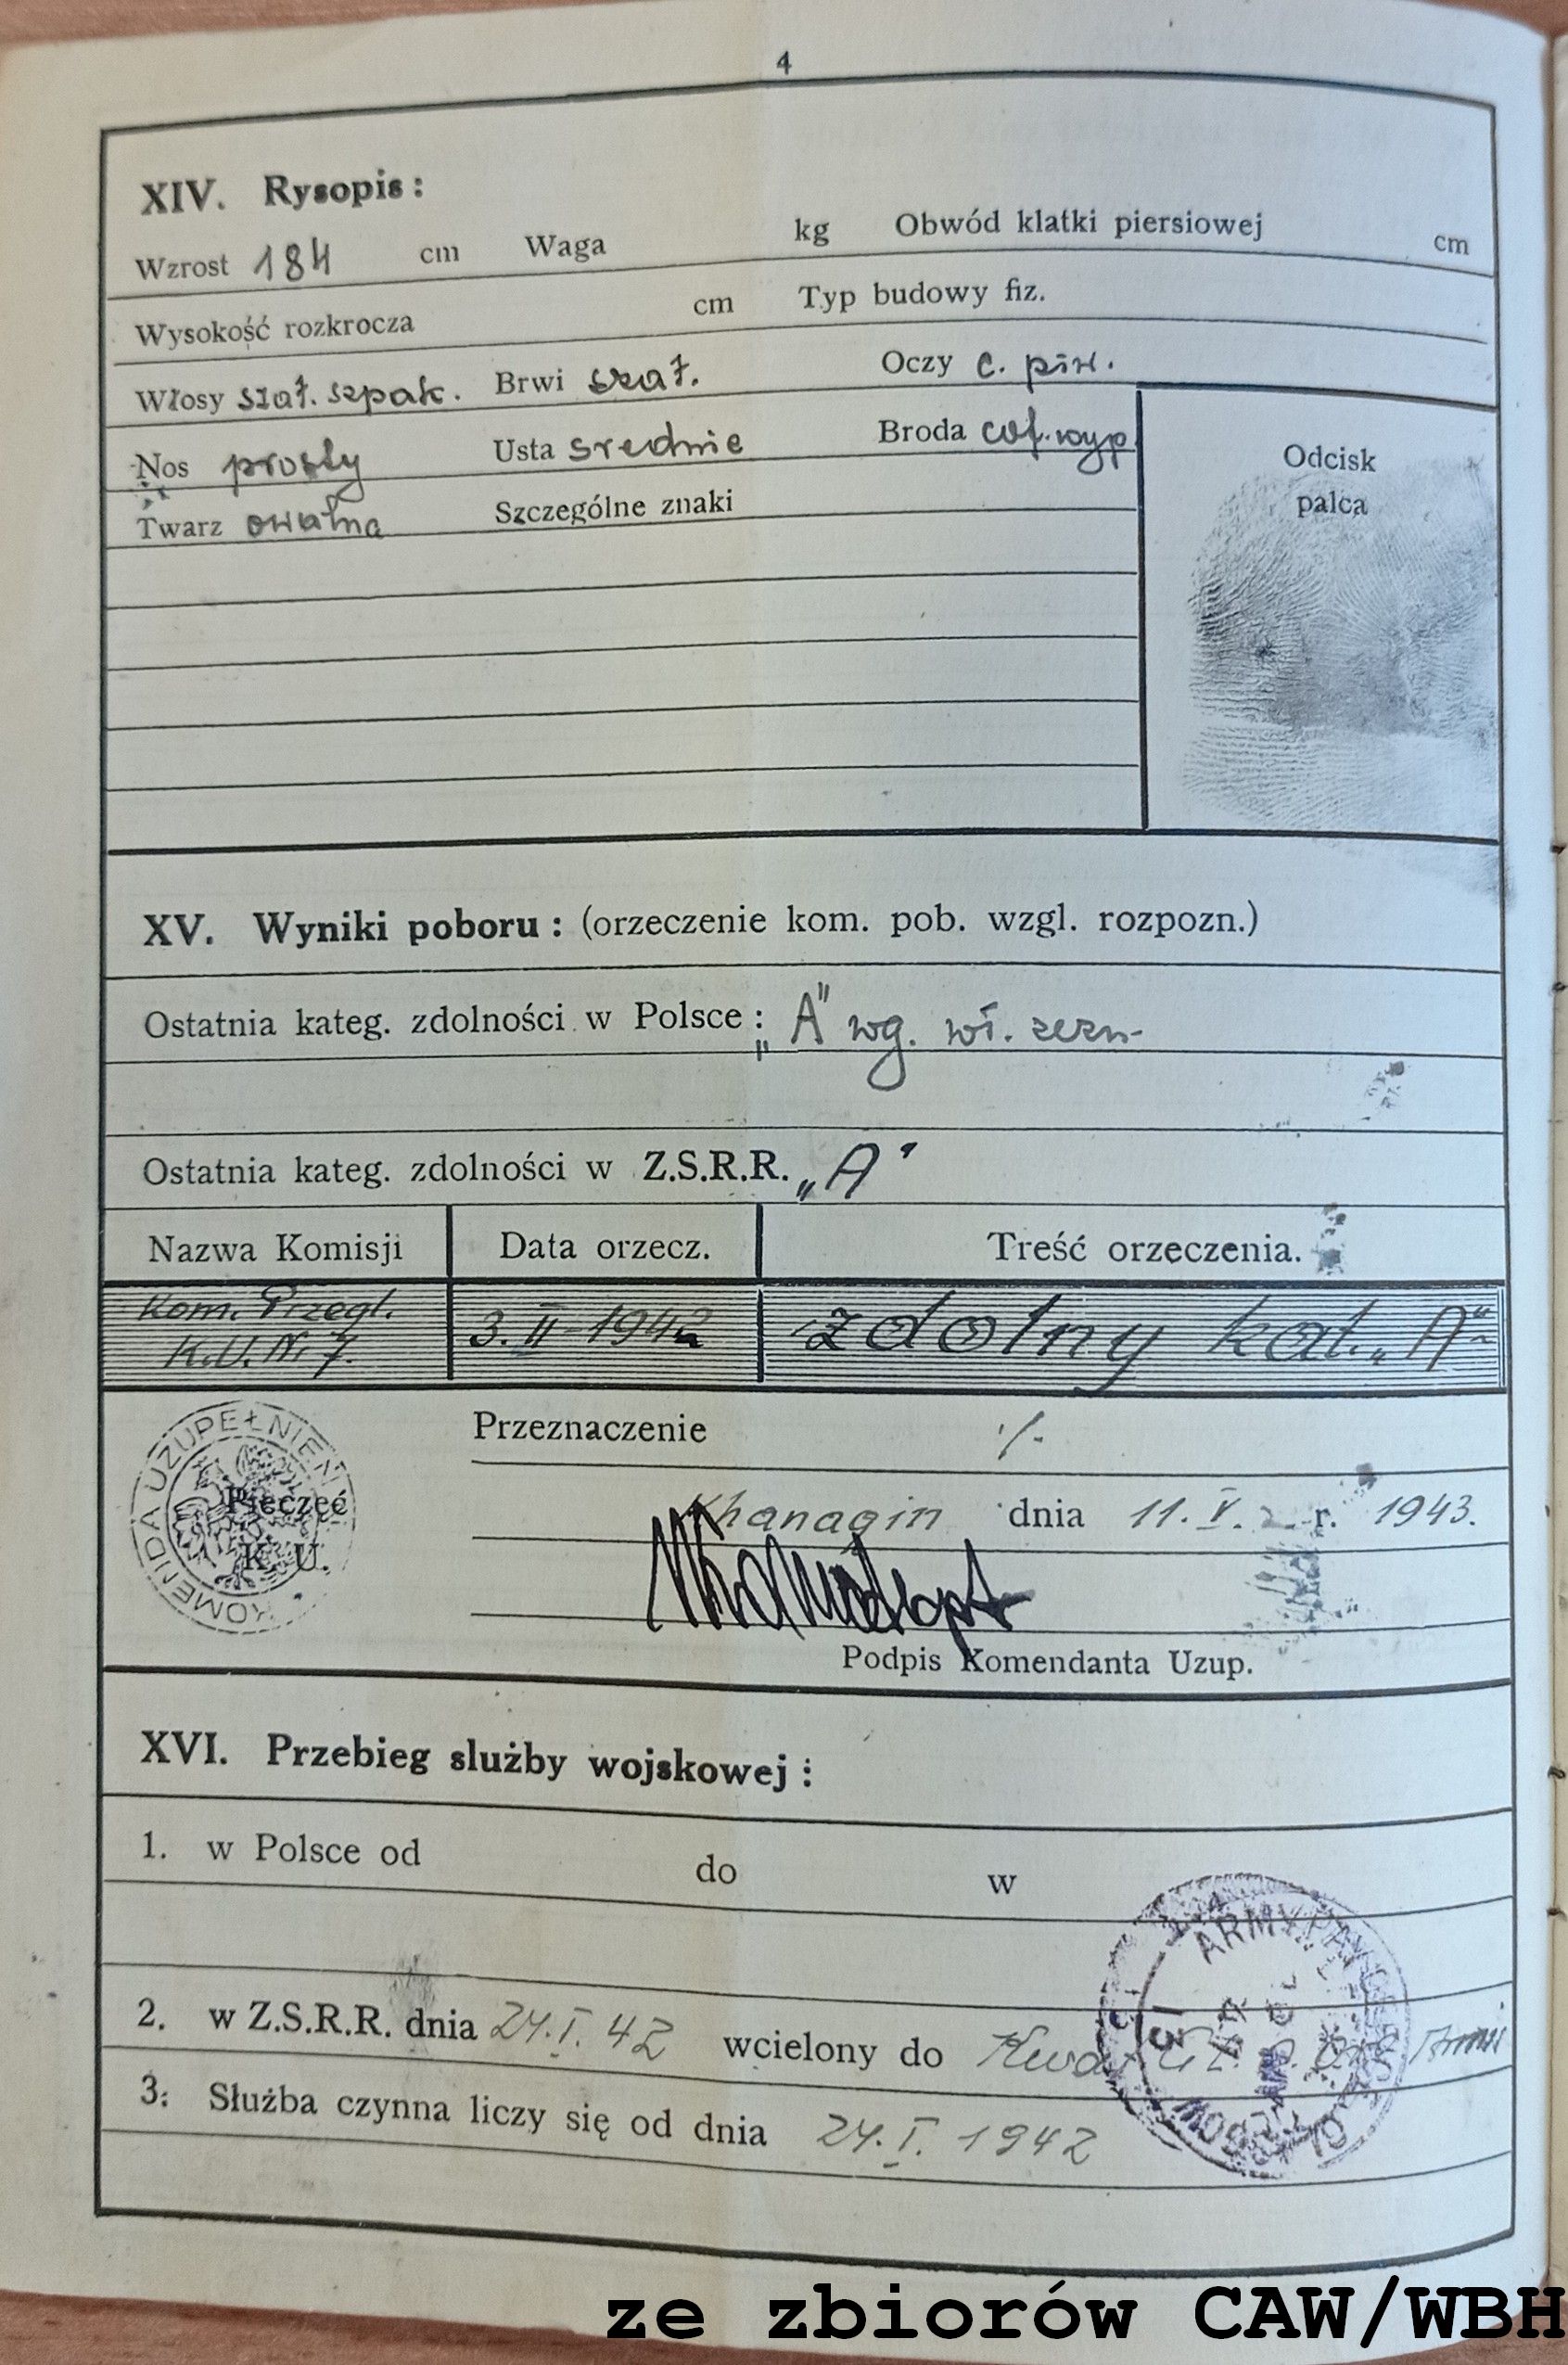 4
XIV. Rysopis:
Wzrost 184 cm Waga kg Obwód klatki piersiowej cm
Wysokość rozkrocza cm Typ budowy fiz.
Włosy szat. szpak. Brwi szat. Oczy c. piw.
Nos prosty Usta srednie Broda cof. wyp.
Twarz owalna Szczególne znaki
Odcisk
palca
XV. Wyniki poboru: (orzeczenie kom. pob. wzgl. rozpozn.)
Ostatnia kateg. zdolności w Polsce: „A" wg. wł. zezn.
Ostatnia kateg. zdolności w Z.S.R.R. „A"
Nazwa Komisji Data orzecz. Treść orzeczenia.
Kom. Przegl.
K.U. Nr 7. 3.II-1942 zdolny kat. „A"
Przeznaczenie ·/-
KOMENDA UZUPEŁNIEŃ
Pieczęć
K. U.
Khanagin dnia 11. V. r. 1943.
Podpis Komendanta Uzup.
XVI. Przebieg służby wojskowej:
1. w Polsce od do w
ARMY
2. w Z.S.R.R. dnia 24.I.42 wcielony do
3. Służba czynna liczy się od dnia 24.I.1942
ze zbiorów CAW/WBH